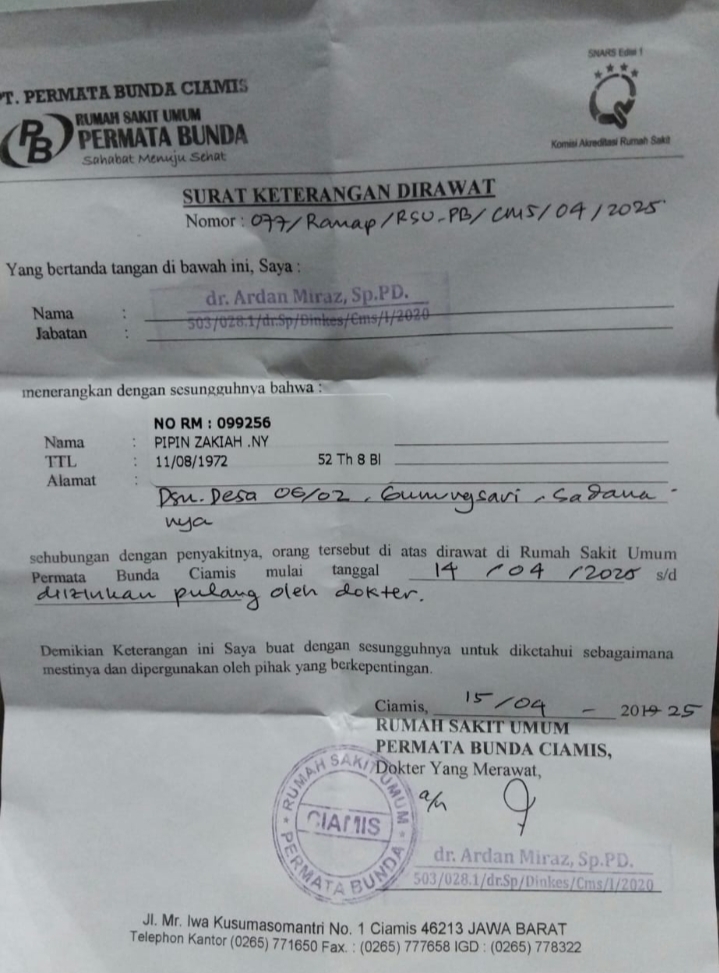 PT. PERMATA BUNDA CIAMIS
PB
RUMAH SAKIT UMUM
PERMATA BUNDA
Sahabat Menuju Sehat
SNARS Edisi 1
Komisi Akreditasi Rumah Sakit
SURAT KETERANGAN DIRAWAT
Nomor : 077/Ranap/RSU-PB/CMS/04/2025
Yang bertanda tangan di bawah ini, Saya :
Nama : dr. Ardan Miraz, Sp.PD.
Jabatan : 503/028.1/dr.Sp/Dinkes/Cms/I/2020
menerangkan dengan sesungguhnya bahwa :
NO RM : 099256
Nama : PIPIN ZAKIAH .NY
TTL : 11/08/1972 52 Th 8 Bl
Alamat : Dsn. Desa 06/02, Gunungsari, Sadana-
nya
sehubungan dengan penyakitnya, orang tersebut di atas dirawat di Rumah Sakit Umum
Permata Bunda Ciamis mulai tanggal 14 / 04 / 2025 s/d
diizinkan pulang oleh dokter.
Demikian Keterangan ini Saya buat dengan sesungguhnya untuk diketahui sebagaimana
mestinya dan dipergunakan oleh pihak yang berkepentingan.
Ciamis, 15/04 - 2019 25
RUMAH SAKIT UMUM
PERMATA BUNDA CIAMIS,
Dokter Yang Merawat,
a/n
RUMAH SAKIT UMUM
CIAMIS
PERMATA BUNDA
dr. Ardan Miraz, Sp.PD.
503/028.1/dr.Sp/Dinkes/Cms/I/2020
Jl. Mr. Iwa Kusumasomantri No. 1 Ciamis 46213 JAWA BARAT
Telephon Kantor (0265) 771650 Fax. : (0265) 777658 IGD : (0265) 778322